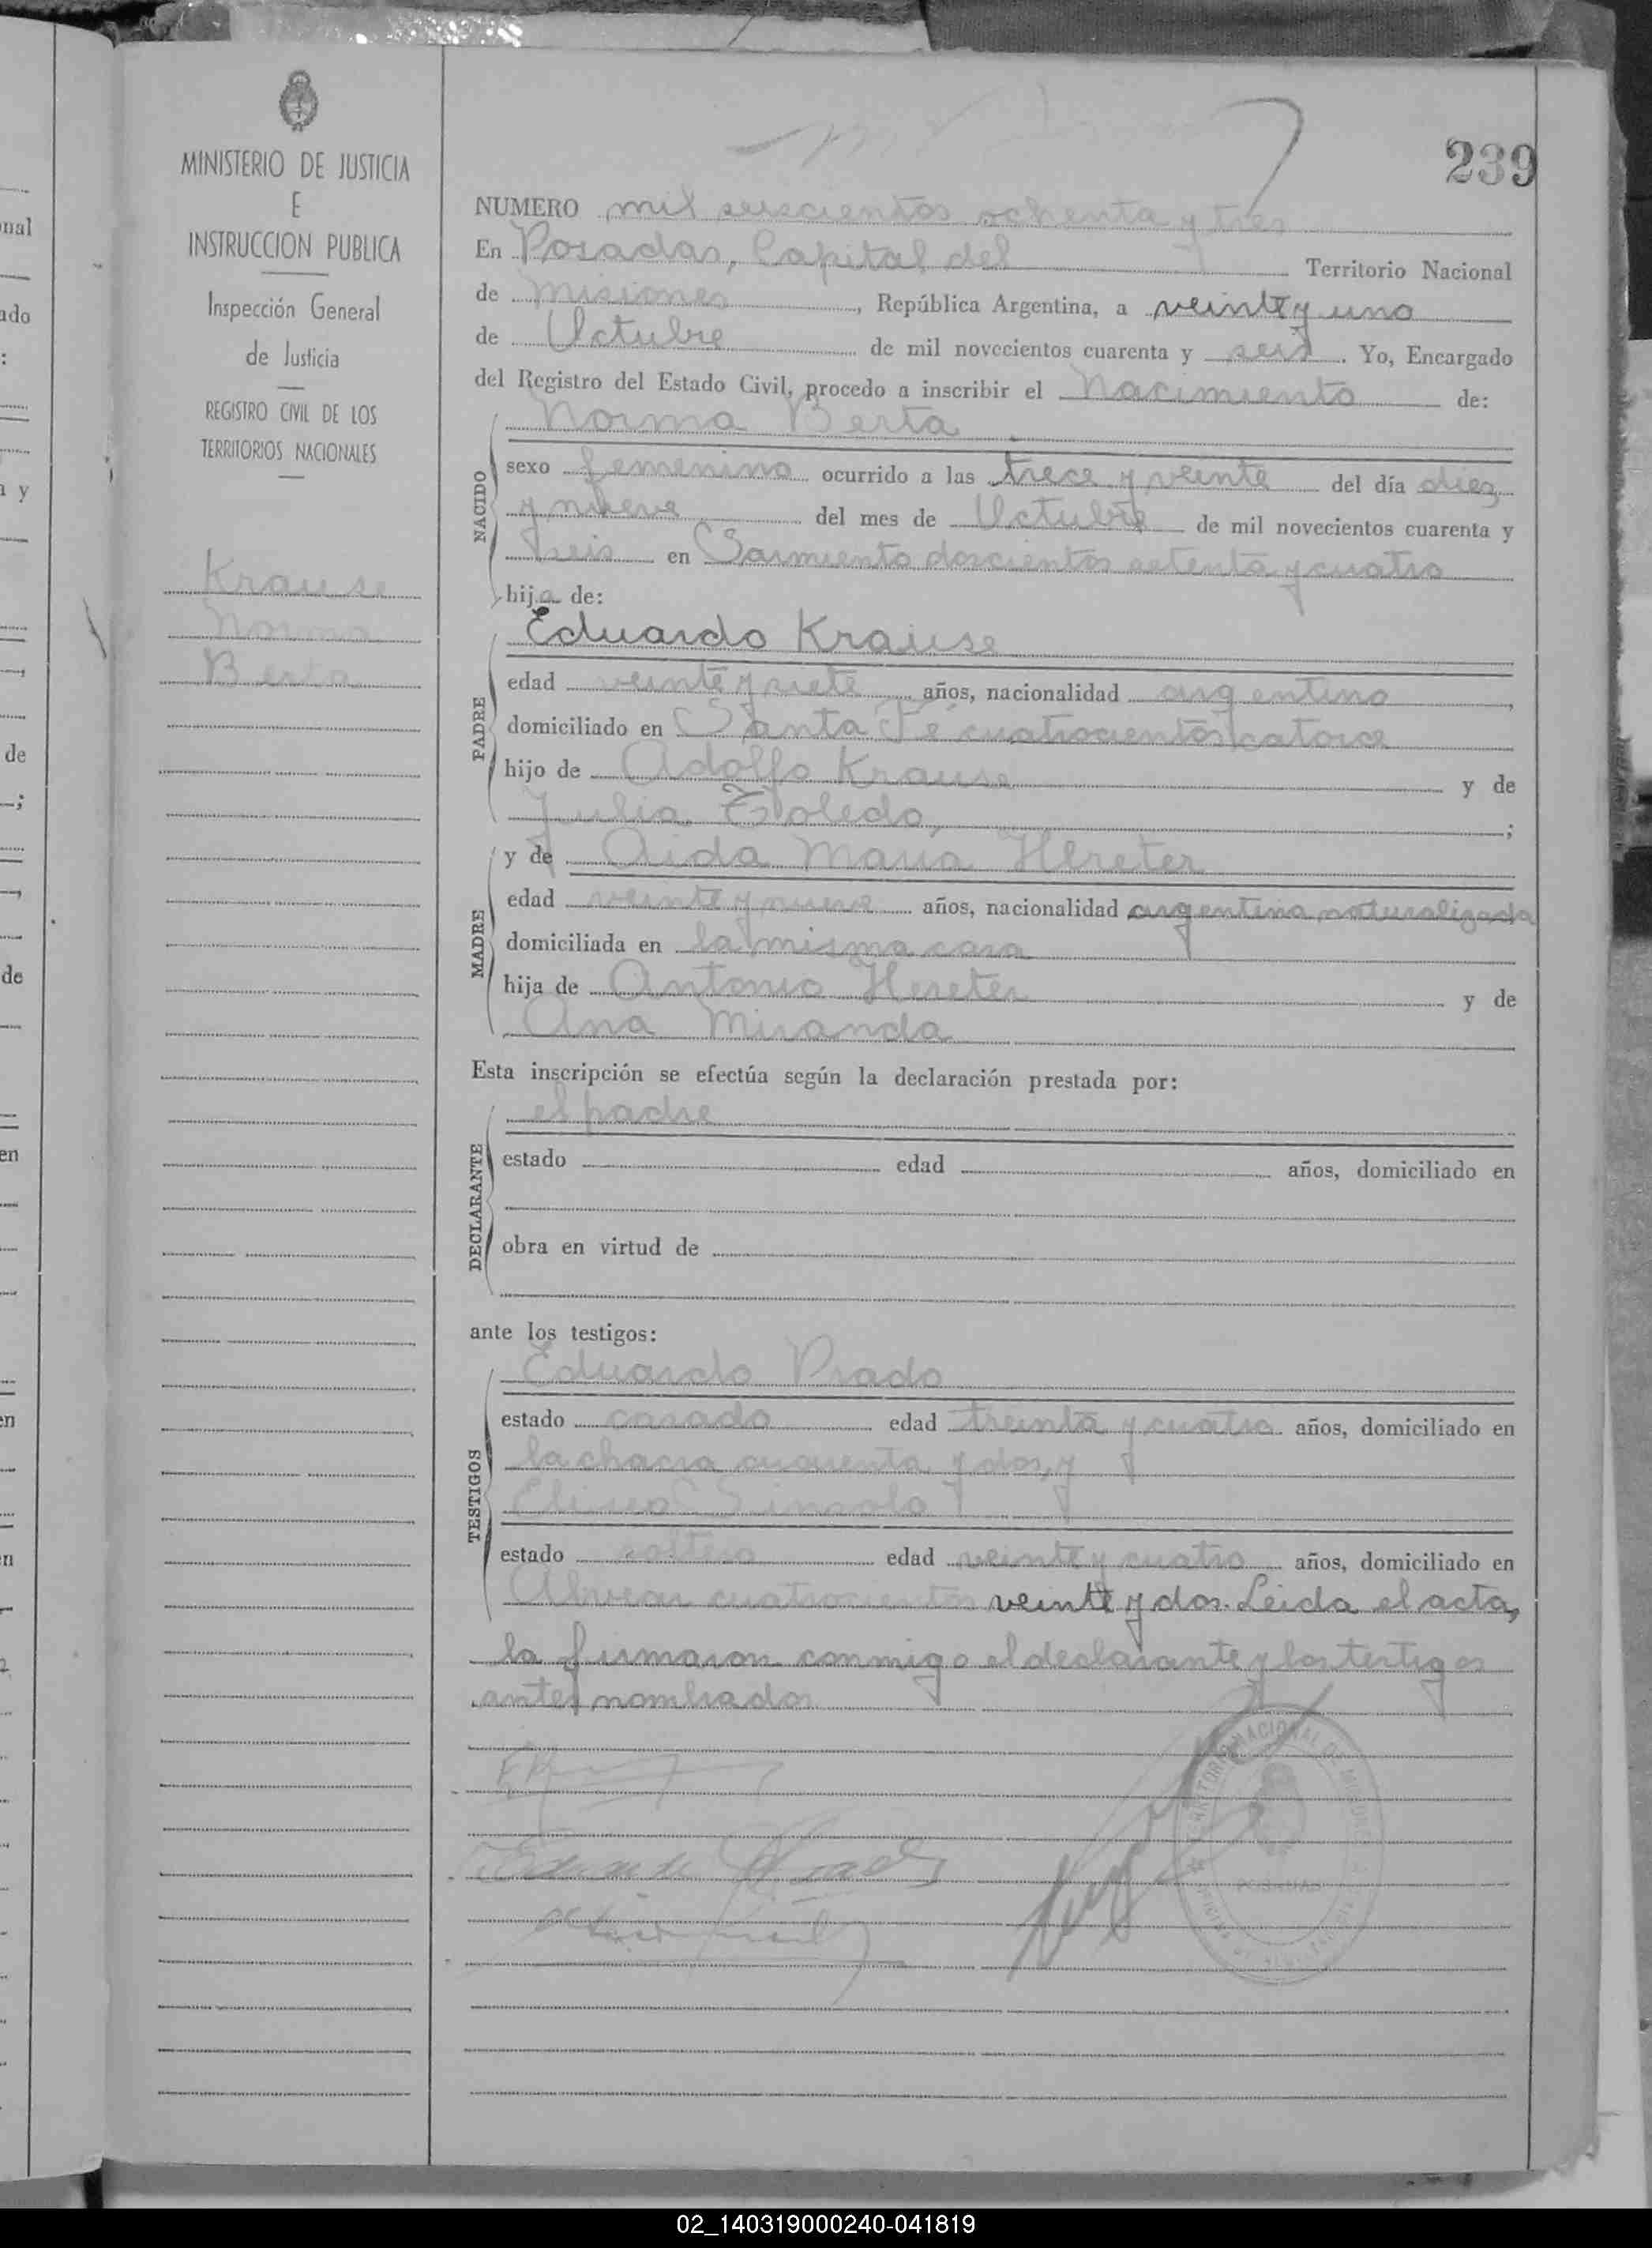 MINISTERIO DE JUSTICIA
E
INSTRUCCION PUBLICA
Inspección General
de Justicia
REGISTRO CIVIL DE LOS
TERRITORIOS NACIONALES
Krause
Norma
Berta
239
NUMERO mil seiscientos ochenta y tres
En Posadas, Capital del Territorio Nacional
de Misiones, República Argentina, a veinte y uno
de Octubre de mil novecientos cuarenta y seis. Yo, Encargado
del Registro del Estado Civil, procedo a inscribir el Nacimiento de:
NACIDO
Norma Berta
sexo femenino ocurrido a las trece y veinte del día diez
y nueve del mes de Octubre de mil novecientos cuarenta y
seis en Sarmiento doscientos setenta y cuatro
hija de:
PADRE
Eduardo Krause
edad veinte y siete años, nacionalidad argentino,
domiciliado en Santa Fé cuatrocientos catorce
hijo de Adolfo Krause y de
Julia Toledo, ;
MADRE
y de Aida Maria Hereter
edad veinte y nueve años, nacionalidad argentina naturalizada
domiciliada en la misma casa
hija de Antonio Hereter y de
Ana Miranda
Esta inscripción se efectúa según la declaración prestada por:
DECLARANTE
el padre
estado edad años, domiciliado en
obra en virtud de
ante los testigos:
TESTIGOS
Eduardo Prado
estado casado edad treinta y cuatro años, domiciliado en
la chacra cuarenta y dos, y
estado soltero edad veinte y cuatro años, domiciliado en
Alvear cuatrocientos veinte y dos. Leida el acta,
la firmaron conmigo el declarante y los testigos
antes nombrados
POSADAS
02_140319000240-041819